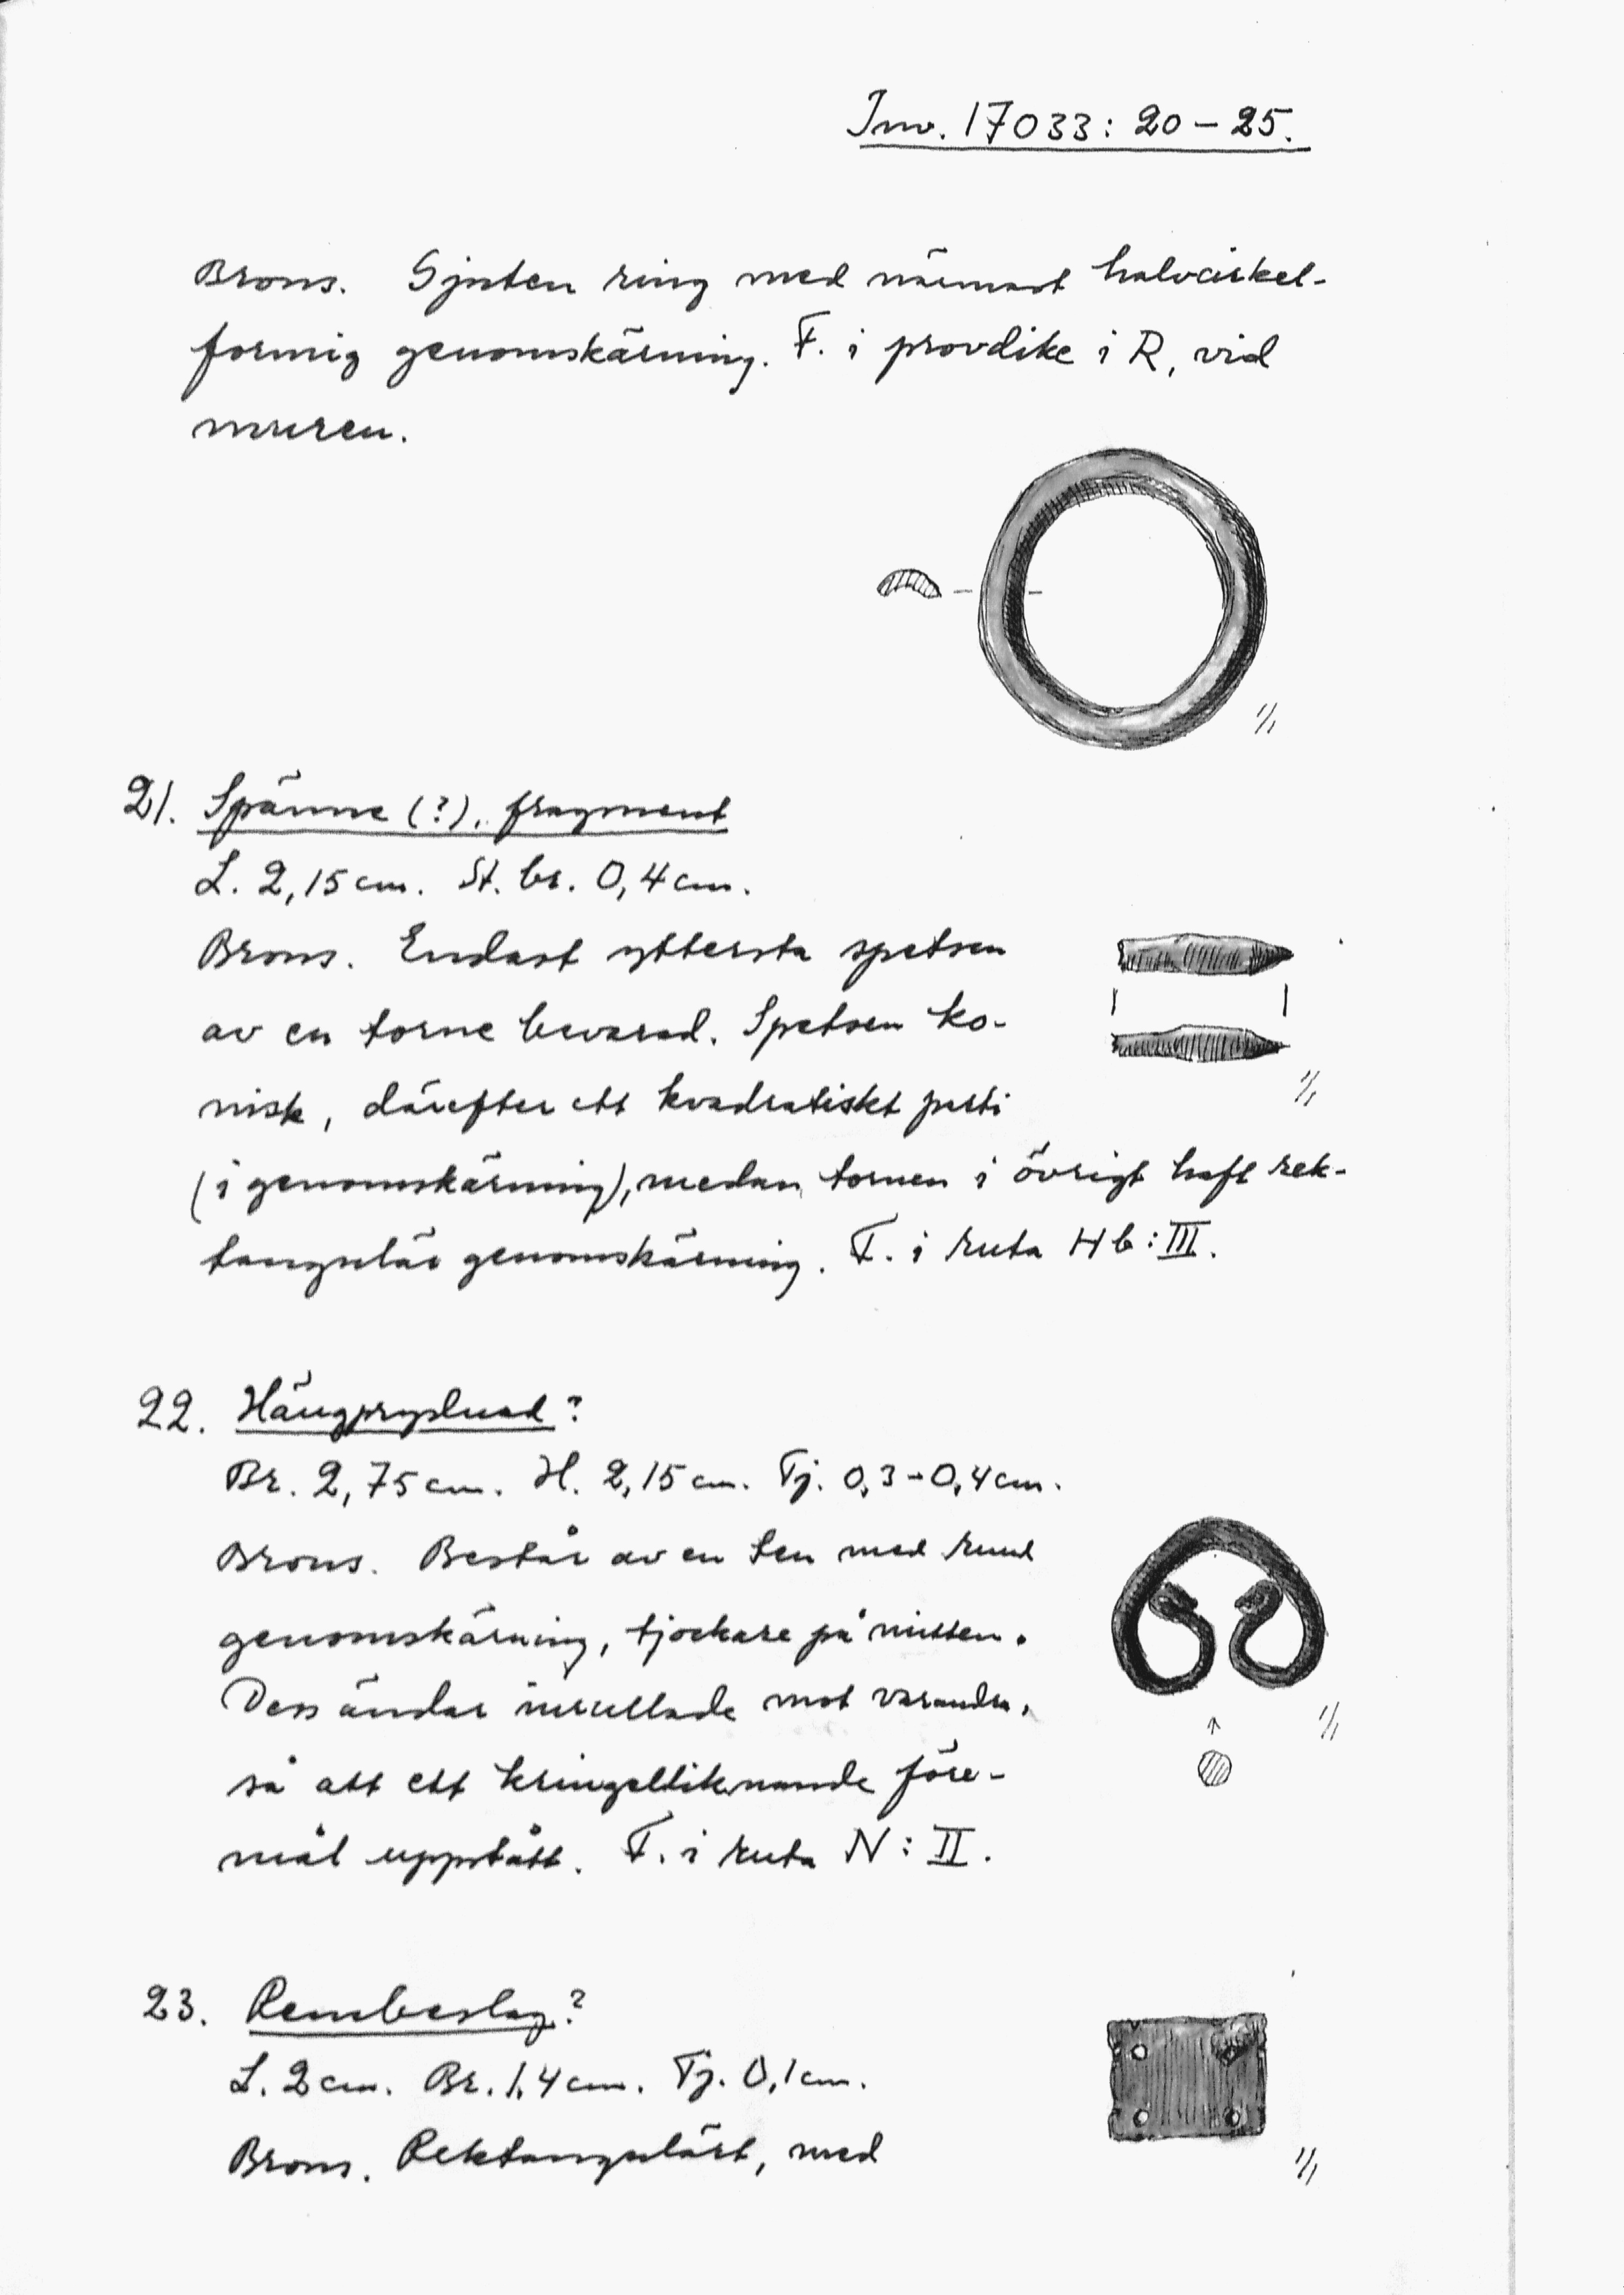 Inv. 17033: 20 – 25.
Brons. Gjuten ring med närmast halvcirkel-
formig genomskärning. F. i provdike i R, vid
muren.
1/1
21. Spänne (?), fragment
L. 2,15 cm. St. br. 0,4 cm.
Brons. Endast yttersta spetsen
av en torne bevarad. Spetsen ko-
nisk, därefter ett kvadratiskt parti
1/1
(i genomskärning), medan tornen i övrigt haft rek-
tangulär genomskärning. F. i ruta Hb: III.
22. Hängprydnad?
Br. 2,75 cm. H. 2,15 cm. Tj. 0,3 – 0,4 cm.
Brons. Består av en ten med rund
genomskärning, tjockare på mitten.
Dess ändar inrullade mot varandra,
så att ett kringelliknande före-
mål uppstått. F. i ruta N: II.
1/1
23. Rembeslag?
L. 2 cm. Br. 1,4 cm. Tj. 0,1 cm.
Brons. Rektangulärt, med
1/1